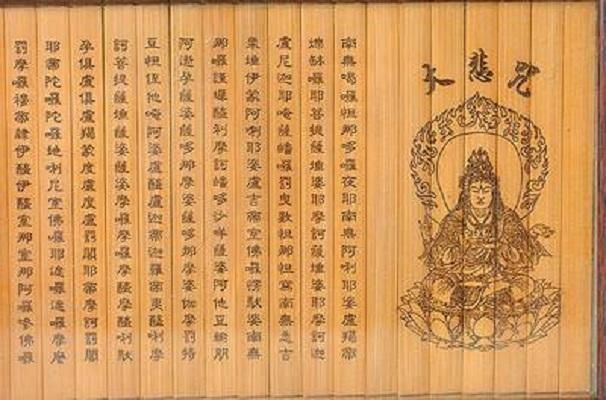 大悲咒
南無喝囉怛那哆囉夜耶南無阿利耶婆盧羯帝
爍缽囉耶菩提薩埵婆耶摩訶薩埵婆耶摩訶迦
盧尼迦耶唵薩皤囉罰曳數怛那怛寫南無悉吉
栗埵伊蒙阿利耶婆盧吉帝室佛囉愣馱婆南無
那囉謹墀醯利摩訶皤哆沙咩薩婆阿他豆輸朋
阿逝孕薩婆薩哆那摩婆薩哆那摩婆伽摩罰特
豆怛侄他唵阿婆盧醯盧迦帝迦羅帝夷醯利摩
訶菩提薩埵薩婆薩婆摩囉摩囉摩醯摩醯利馱
孕俱盧俱盧羯蒙度盧度盧罰闍耶帝摩訶罰闍
耶帝陀囉陀囉地利尼室佛囉耶遮囉遮囉摩麼
罰摩囉穆帝隸伊醯伊醯室那室那阿囉參佛囉